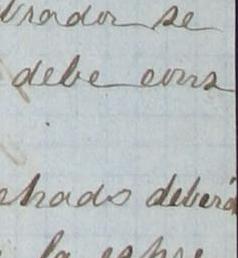 brador se
debe cons
chado deberá
la espre